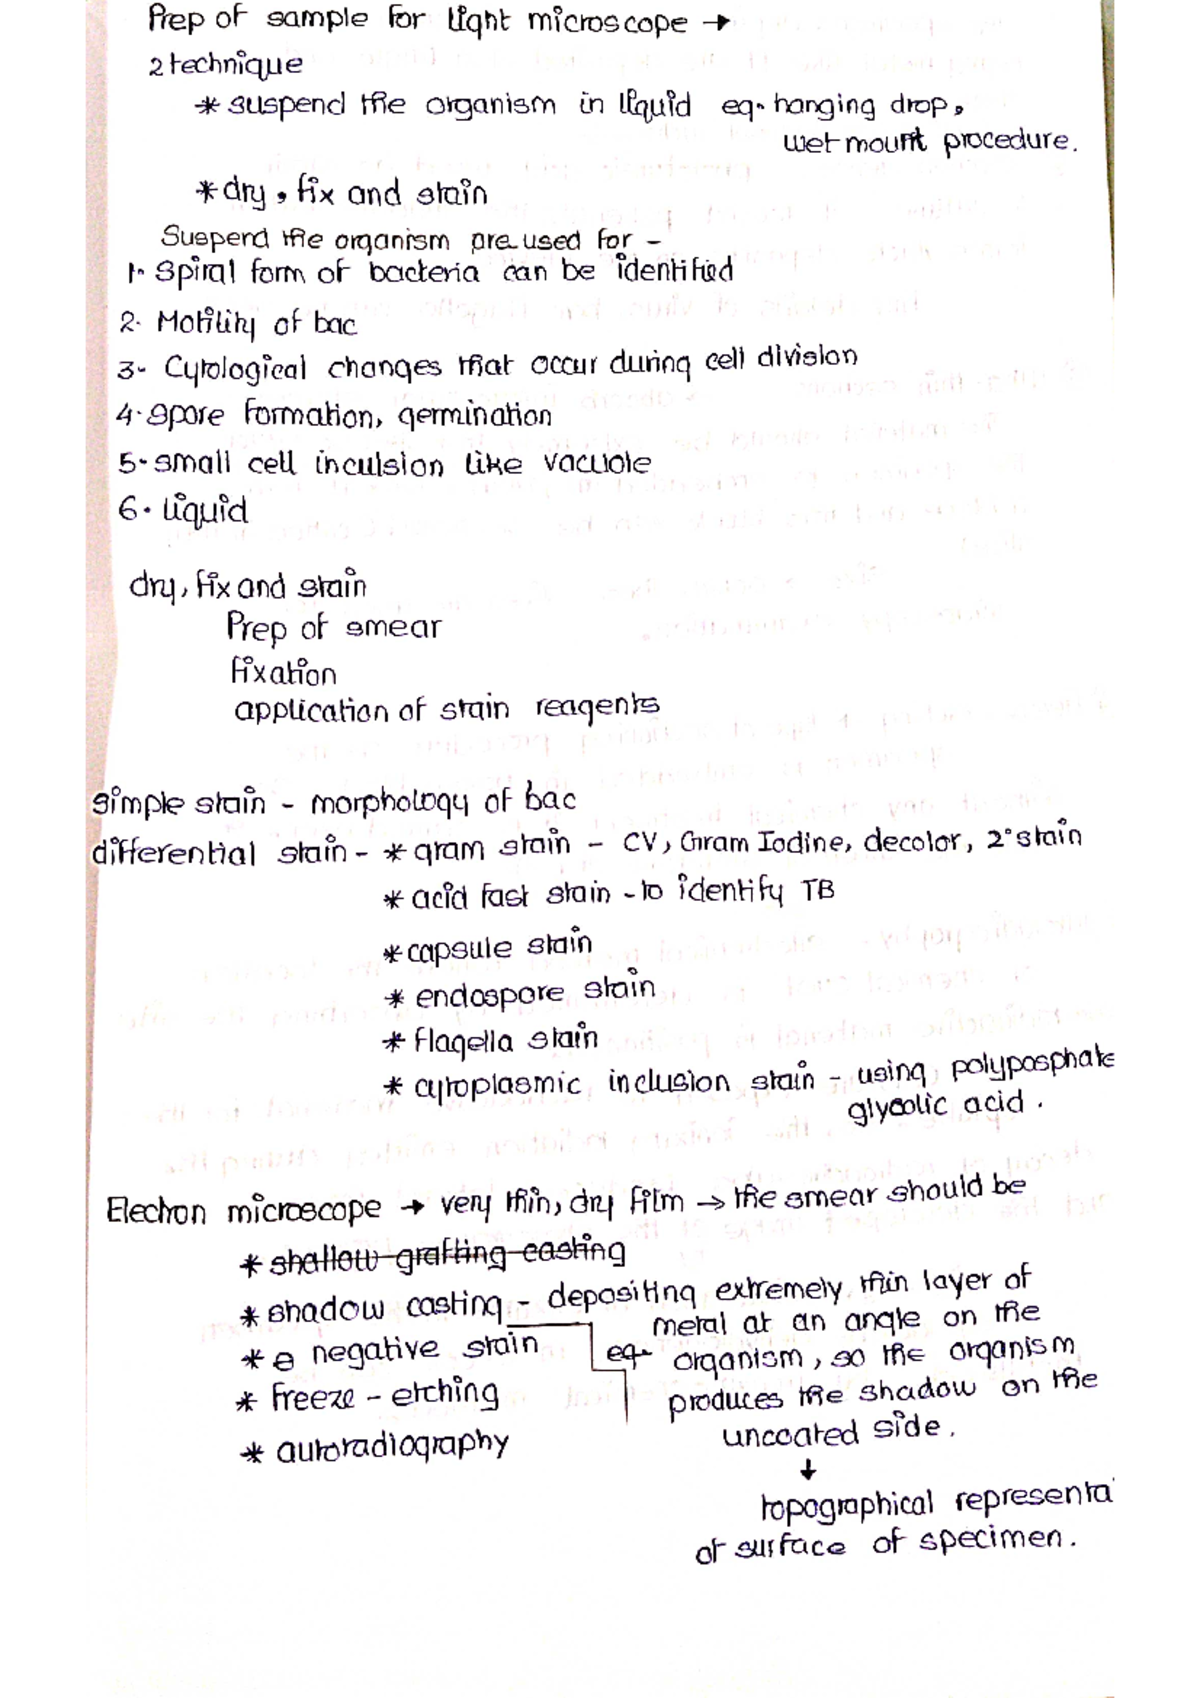 Prep of sample for light microscope →
2 technique
* suspend the organism in liquid eg. hanging drop,
wet mount procedure.
* dry, fix and stain
Suspend the organism are used for -
1. Spiral form of bacteria can be identified
2. Motility of bac
3. Cytological changes that occur during cell division
4. Spore formation, germination
5. small cell inculsion like vacuole
6. liquid
dry, fix and stain
Prep of smear
fixation
application of stain reagents
simple stain - morphology of bac
differential stain - * gram stain - CV, Gram Iodine, decolor, 2° stain
* acid fast stain - to identify TB
* capsule stain
* endospore stain
* flagella stain
* cytoplasmic inclusion stain - using polyposphate
glycolic acid.
Electron microscope → very thin, dry film → the smear should be
* shallow grafting casting
* shadow casting - depositing extremely thin layer of
metal at an angle on the
* negative stain eg- organism, so the organism
* freeze - etching produces the shadow on the
* autoradiography uncoated side.
↓
topographical representa
of surface of specimen.